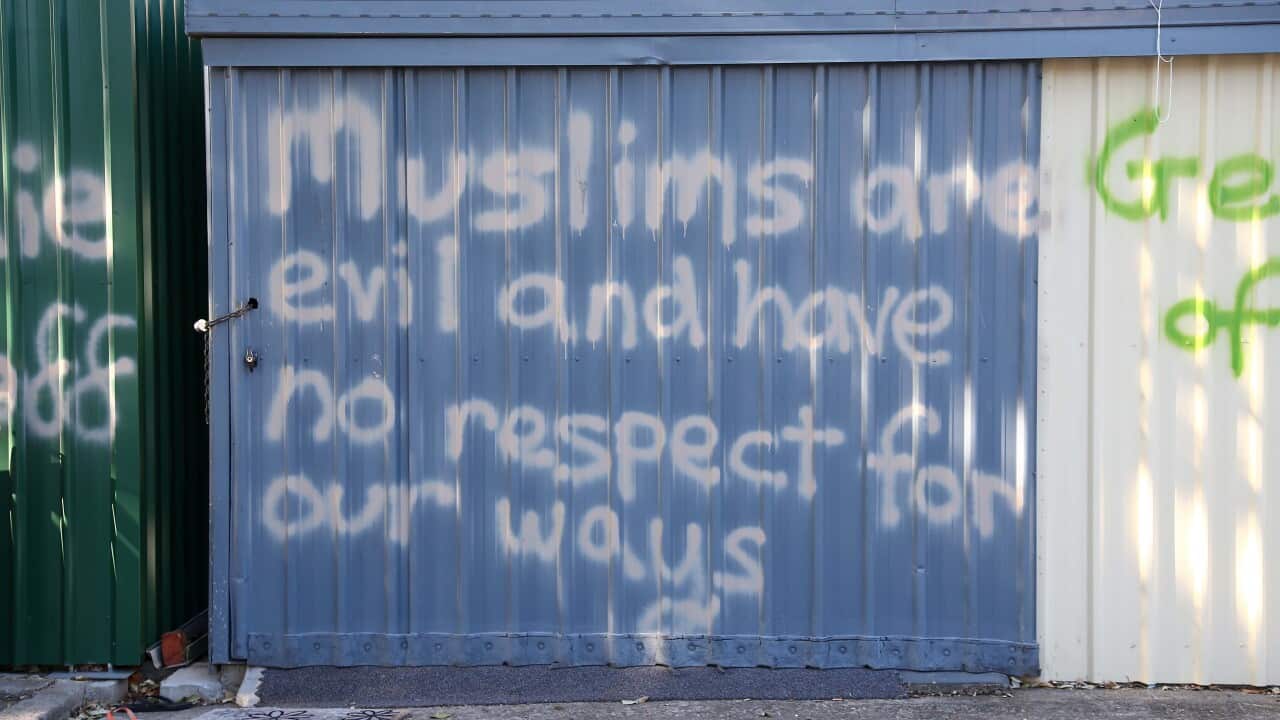 Muslims are
evil and have
no respect for
our ways
of